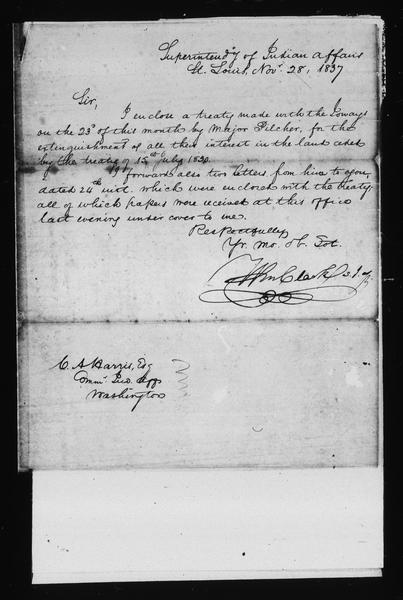 Superintendy of Indian Affairs
St. Louis, Novr. 28, 1837
Sir,
I enclose a treaty made with the Ioways
on the 23d of this month by Major Pilcher, for the
extinguishment of all their interest in the land ceded
by the treaty of 15th July 1830.
I forward also two letters from him to you,
dated 24th inst. which were enclosed with the treaty
all of which papers were received at this office
last evening under cover to me.
Respectfully
Yr. Mo. Ob. Svt.
Wm Clark
C. A. Harris, Esq
Comr. Ind. Affs
Washington